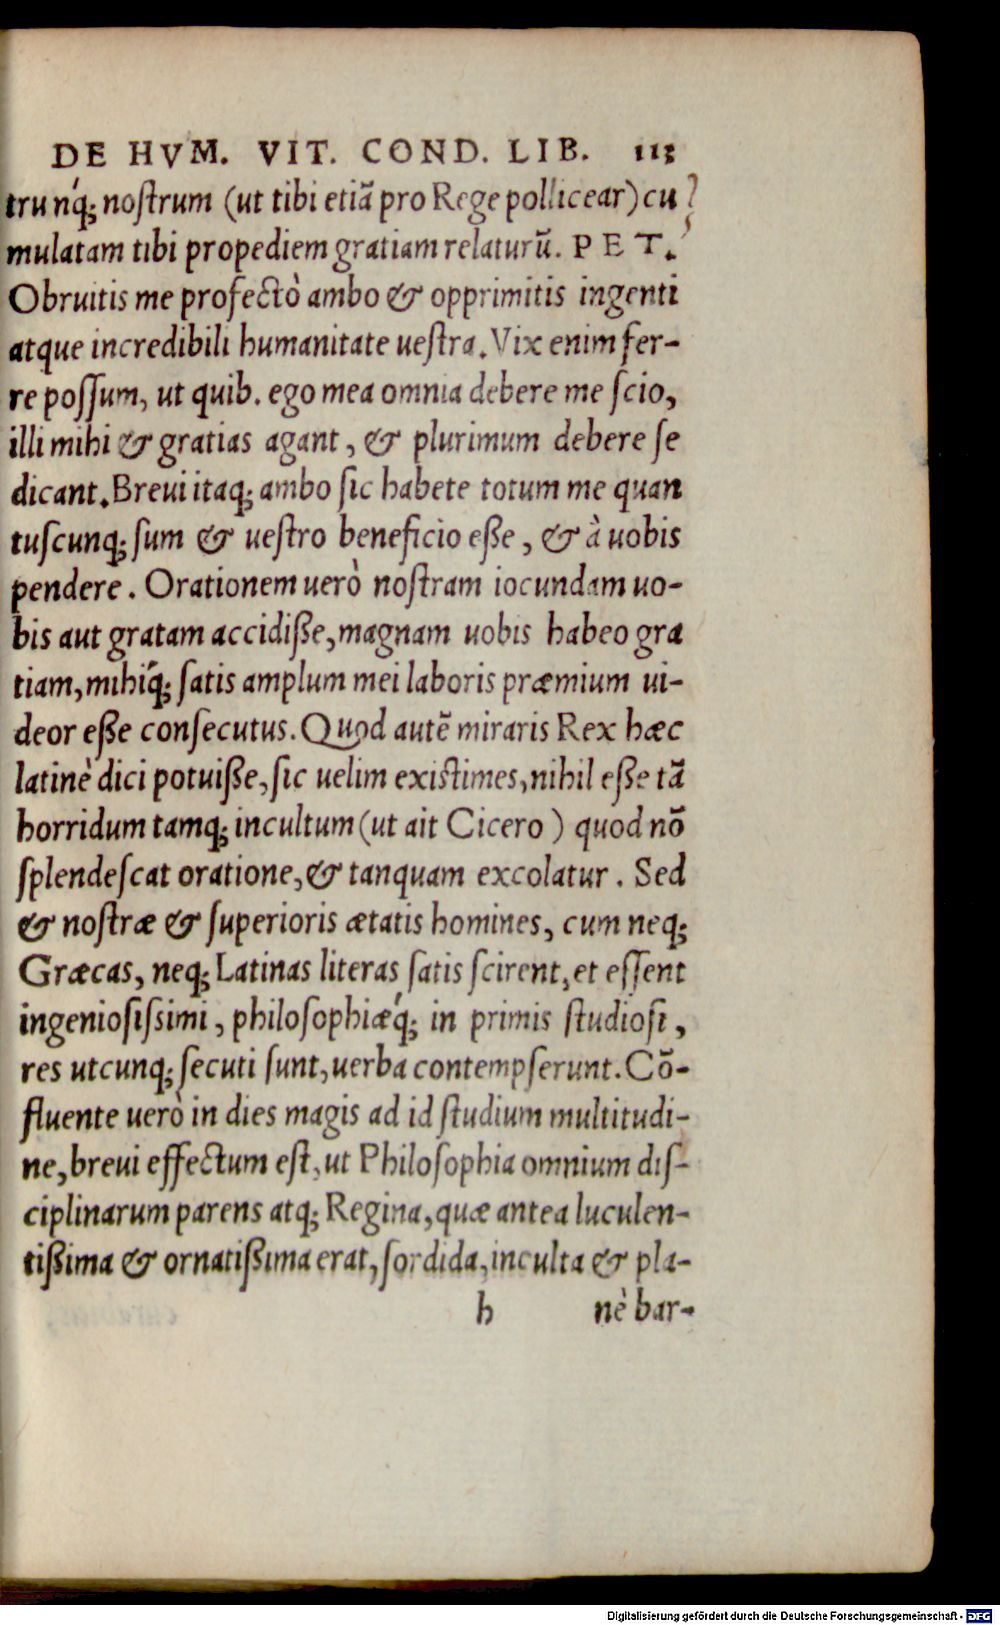 DE HVM. VIT. COND. LIB. 113
trunq́; noſtrum (ut tibi etiã pro Rege pollicear) cu
mulatam tibi propediem gratiam relaturũ. PET.
Obruitis me profectò ambo & opprimitis ingenti
atque incredibili humanitate ueſtra. Vix enim fer-
re poſſum, ut quib. ego mea omnia debere me ſcio,
illi mihi & gratias agant, & plurimum debere ſe
dicant. Breui itaq; ambo ſic habete totum me quan
tuſcunq; ſum & ueſtro beneficio eße, & à uobis
pendere. Orationem uerò noſtram iocundam uo-
bis aut gratam accidiße, magnam uobis habeo gra
tiam, mihiq́; ſatis amplum mei laboris præmium ui-
deor eße conſecutus. Quod autẽ miraris Rex hæc
latinè dici potuiße, ſic uelim existimes, nihil eße tã
horridum tamq; incultum (ut ait Cicero) quod nõ
ſplendeſcat oratione, & tanquam excolatur. Sed
& noſtræ & ſuperioris ætatis homines, cum neq;
Græcas, neq; Latinas literas ſatis ſcirent, et eſſent
ingenioſiſsimi, philoſophiæq́; in primis ſtudioſi,
res utcunq; ſecuti ſunt, uerba contempſerunt. Cõ-
fluente uerò in dies magis ad id ſtudium multitudi-
ne, breui effectum eſt, ut Philoſophia omnium diſ-
ciplinarum parens atq; Regina, quæ antea luculen-
tißima & ornatißima erat, ſordida, inculta & pla-
h nè bar-
Digitalisierung gefördert durch die Deutsche Forschungsgemeinschaft - DFG